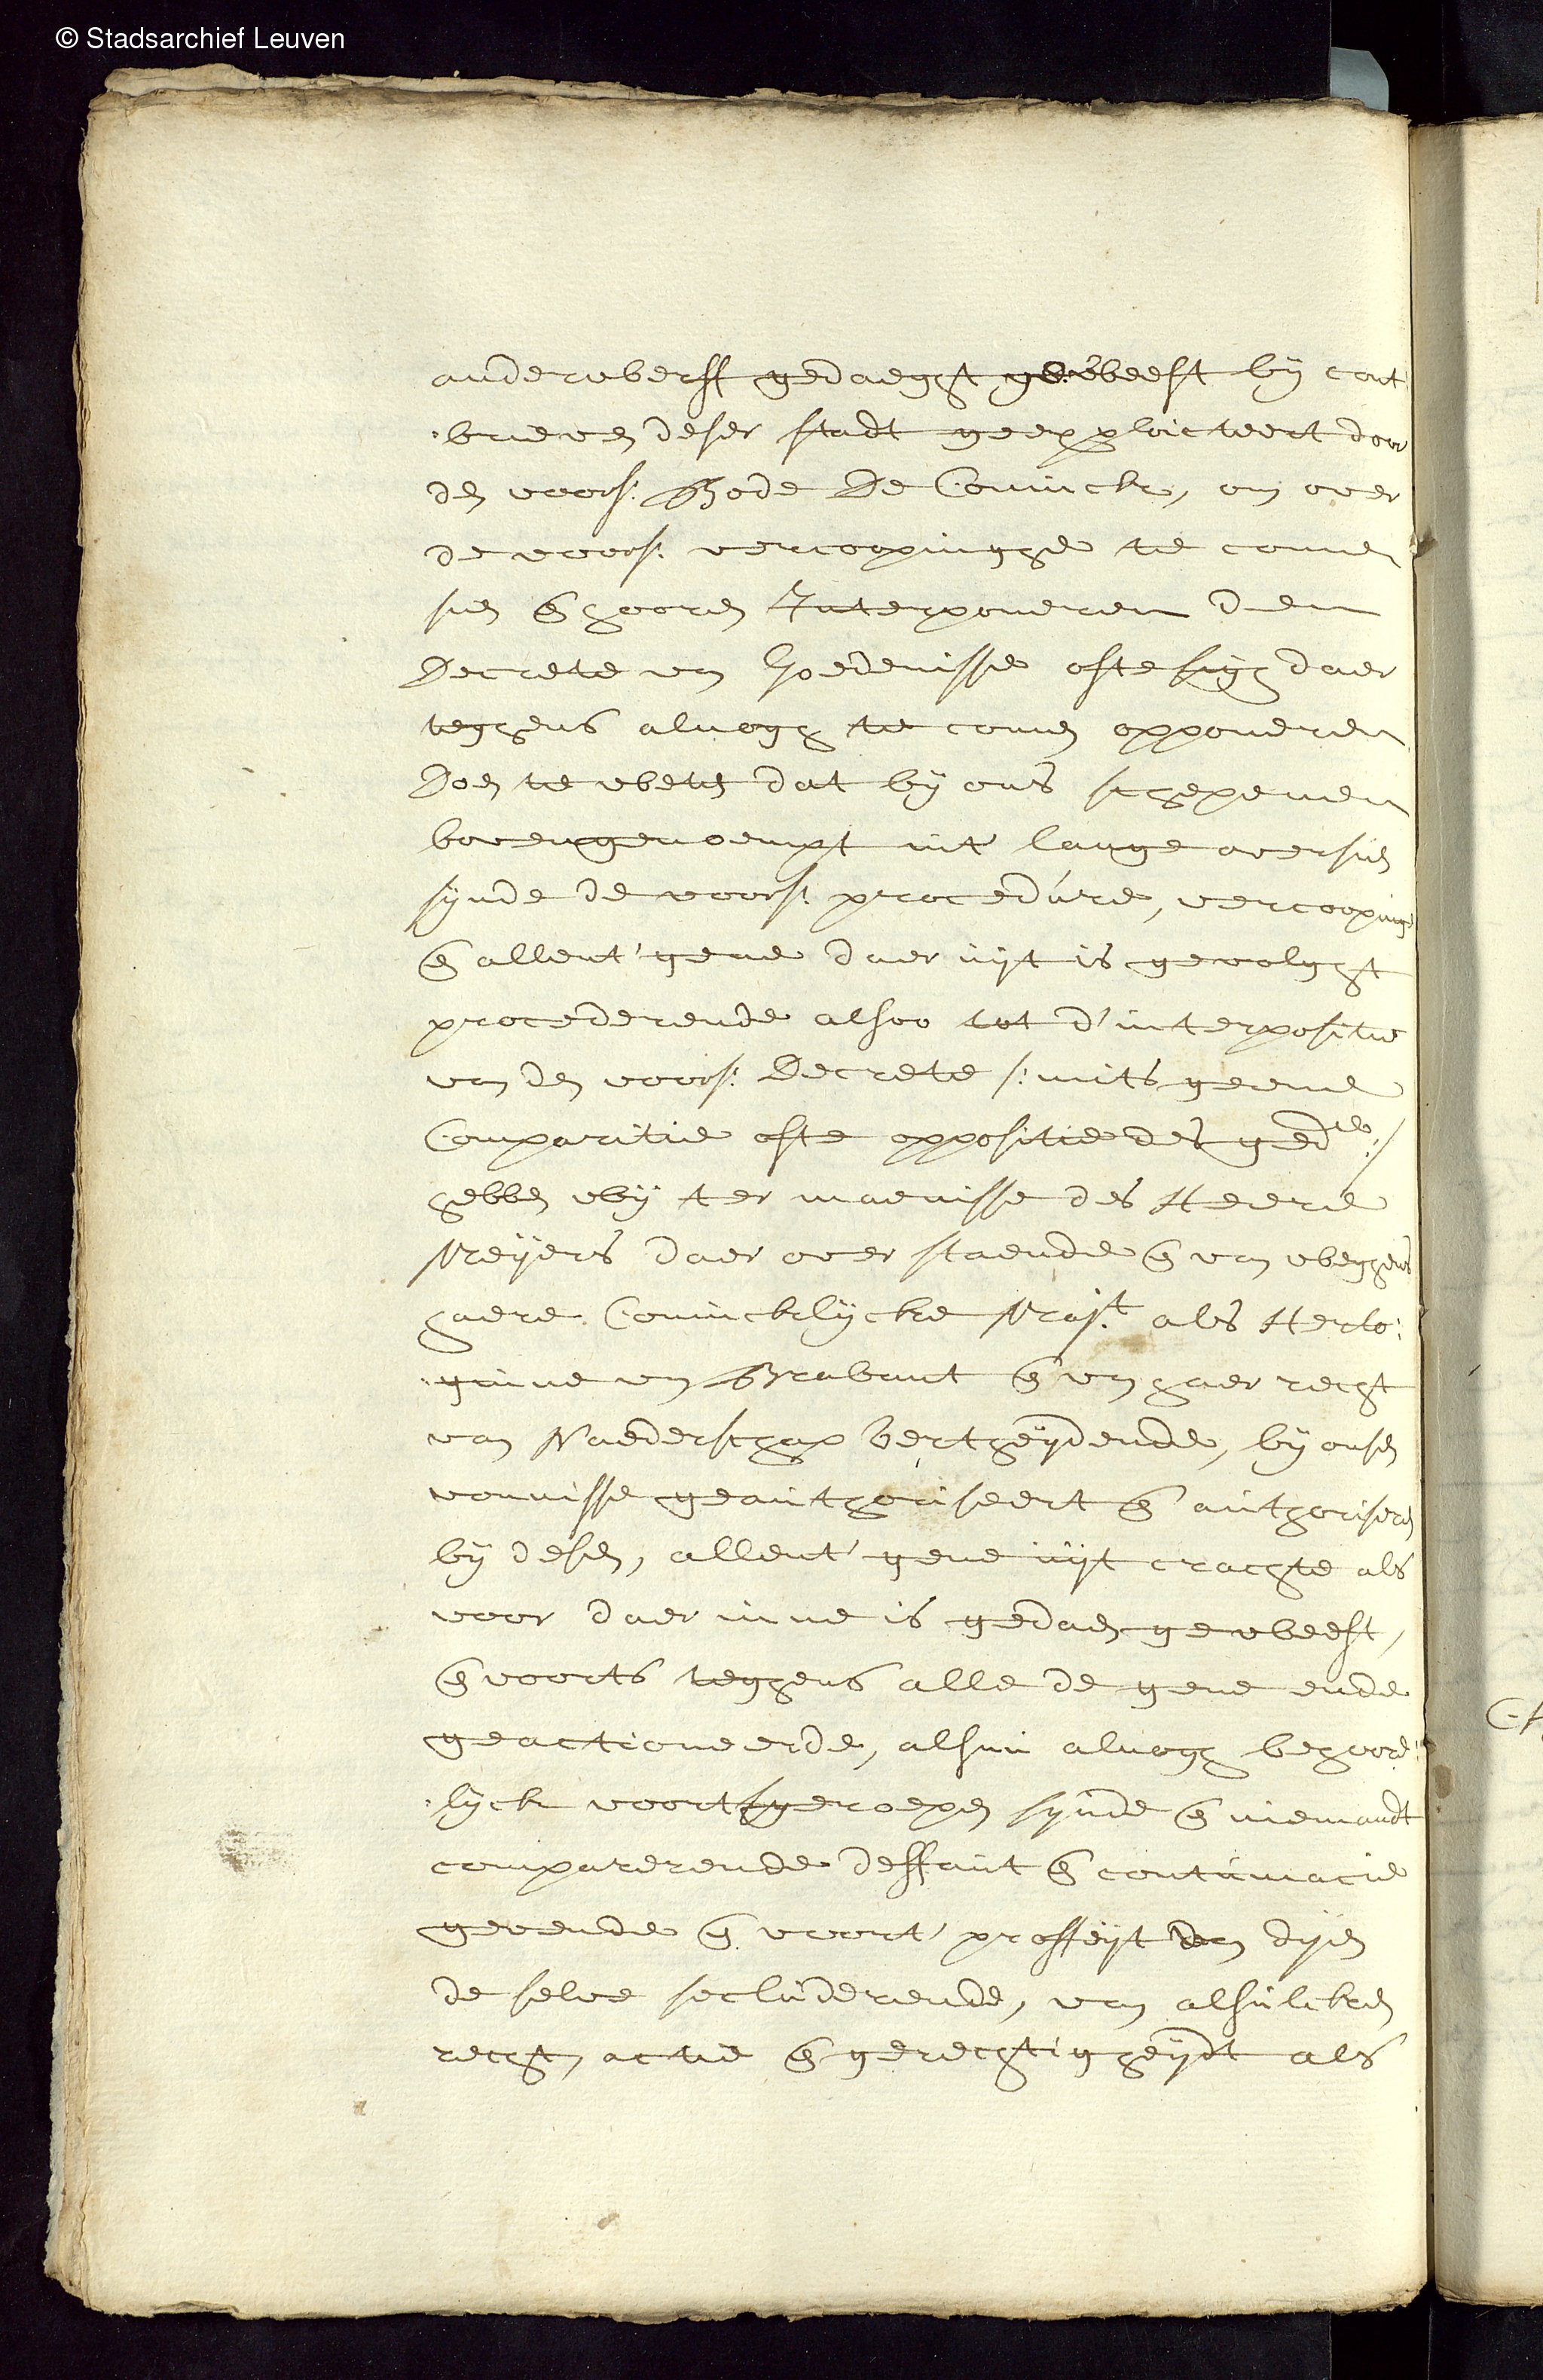 © Stadsarchief Leuven
anderwberff gedaeght gewbeest bij cont
:brieven deser stadt geexploicteert door
den voors: Bode De Coninck, om over
de voors: vercoopingge te comen
sien en hooren Interponeren den
Decrete van Goedenisse ofte sigh daer
tegghens alnogh te comen opponeren
Doen te wbeten dat bij ons schepenen
bovengenoempt int' lange oversien
sijnde de voors: procedúre, vercooping
en allent' gene daer uijt is gevolght
procederende alsoo tot d'interpositie
van den voors: Decrete /: mits geene
Comparitie ofte oppositie des ged.de :/
hebben wbij ter maenisse des Heere
Meijers daer over staende en van wbegghens
haere Conincklijcke Maj.t als Herto:
:ginne van Brabant en van haer recht
van Naederschap vertheijdende, bij onsen
vonnisse geauthoriseert en authoriseren
bij desen, allent' gene uijt crachte als
voor daer inne is gedaen gewbeest,
en voorts tegghens alle de gene ende
geactioneerde, alsnu alnogh behoore:
:lijck voortsgeroepen sijnde en niemandt
comparerende deffaut en contumacie
gevende en voort' proffeijt van dijen
de selve secluderende, van alsulcken
recht, actie en gerechtigheijdt als